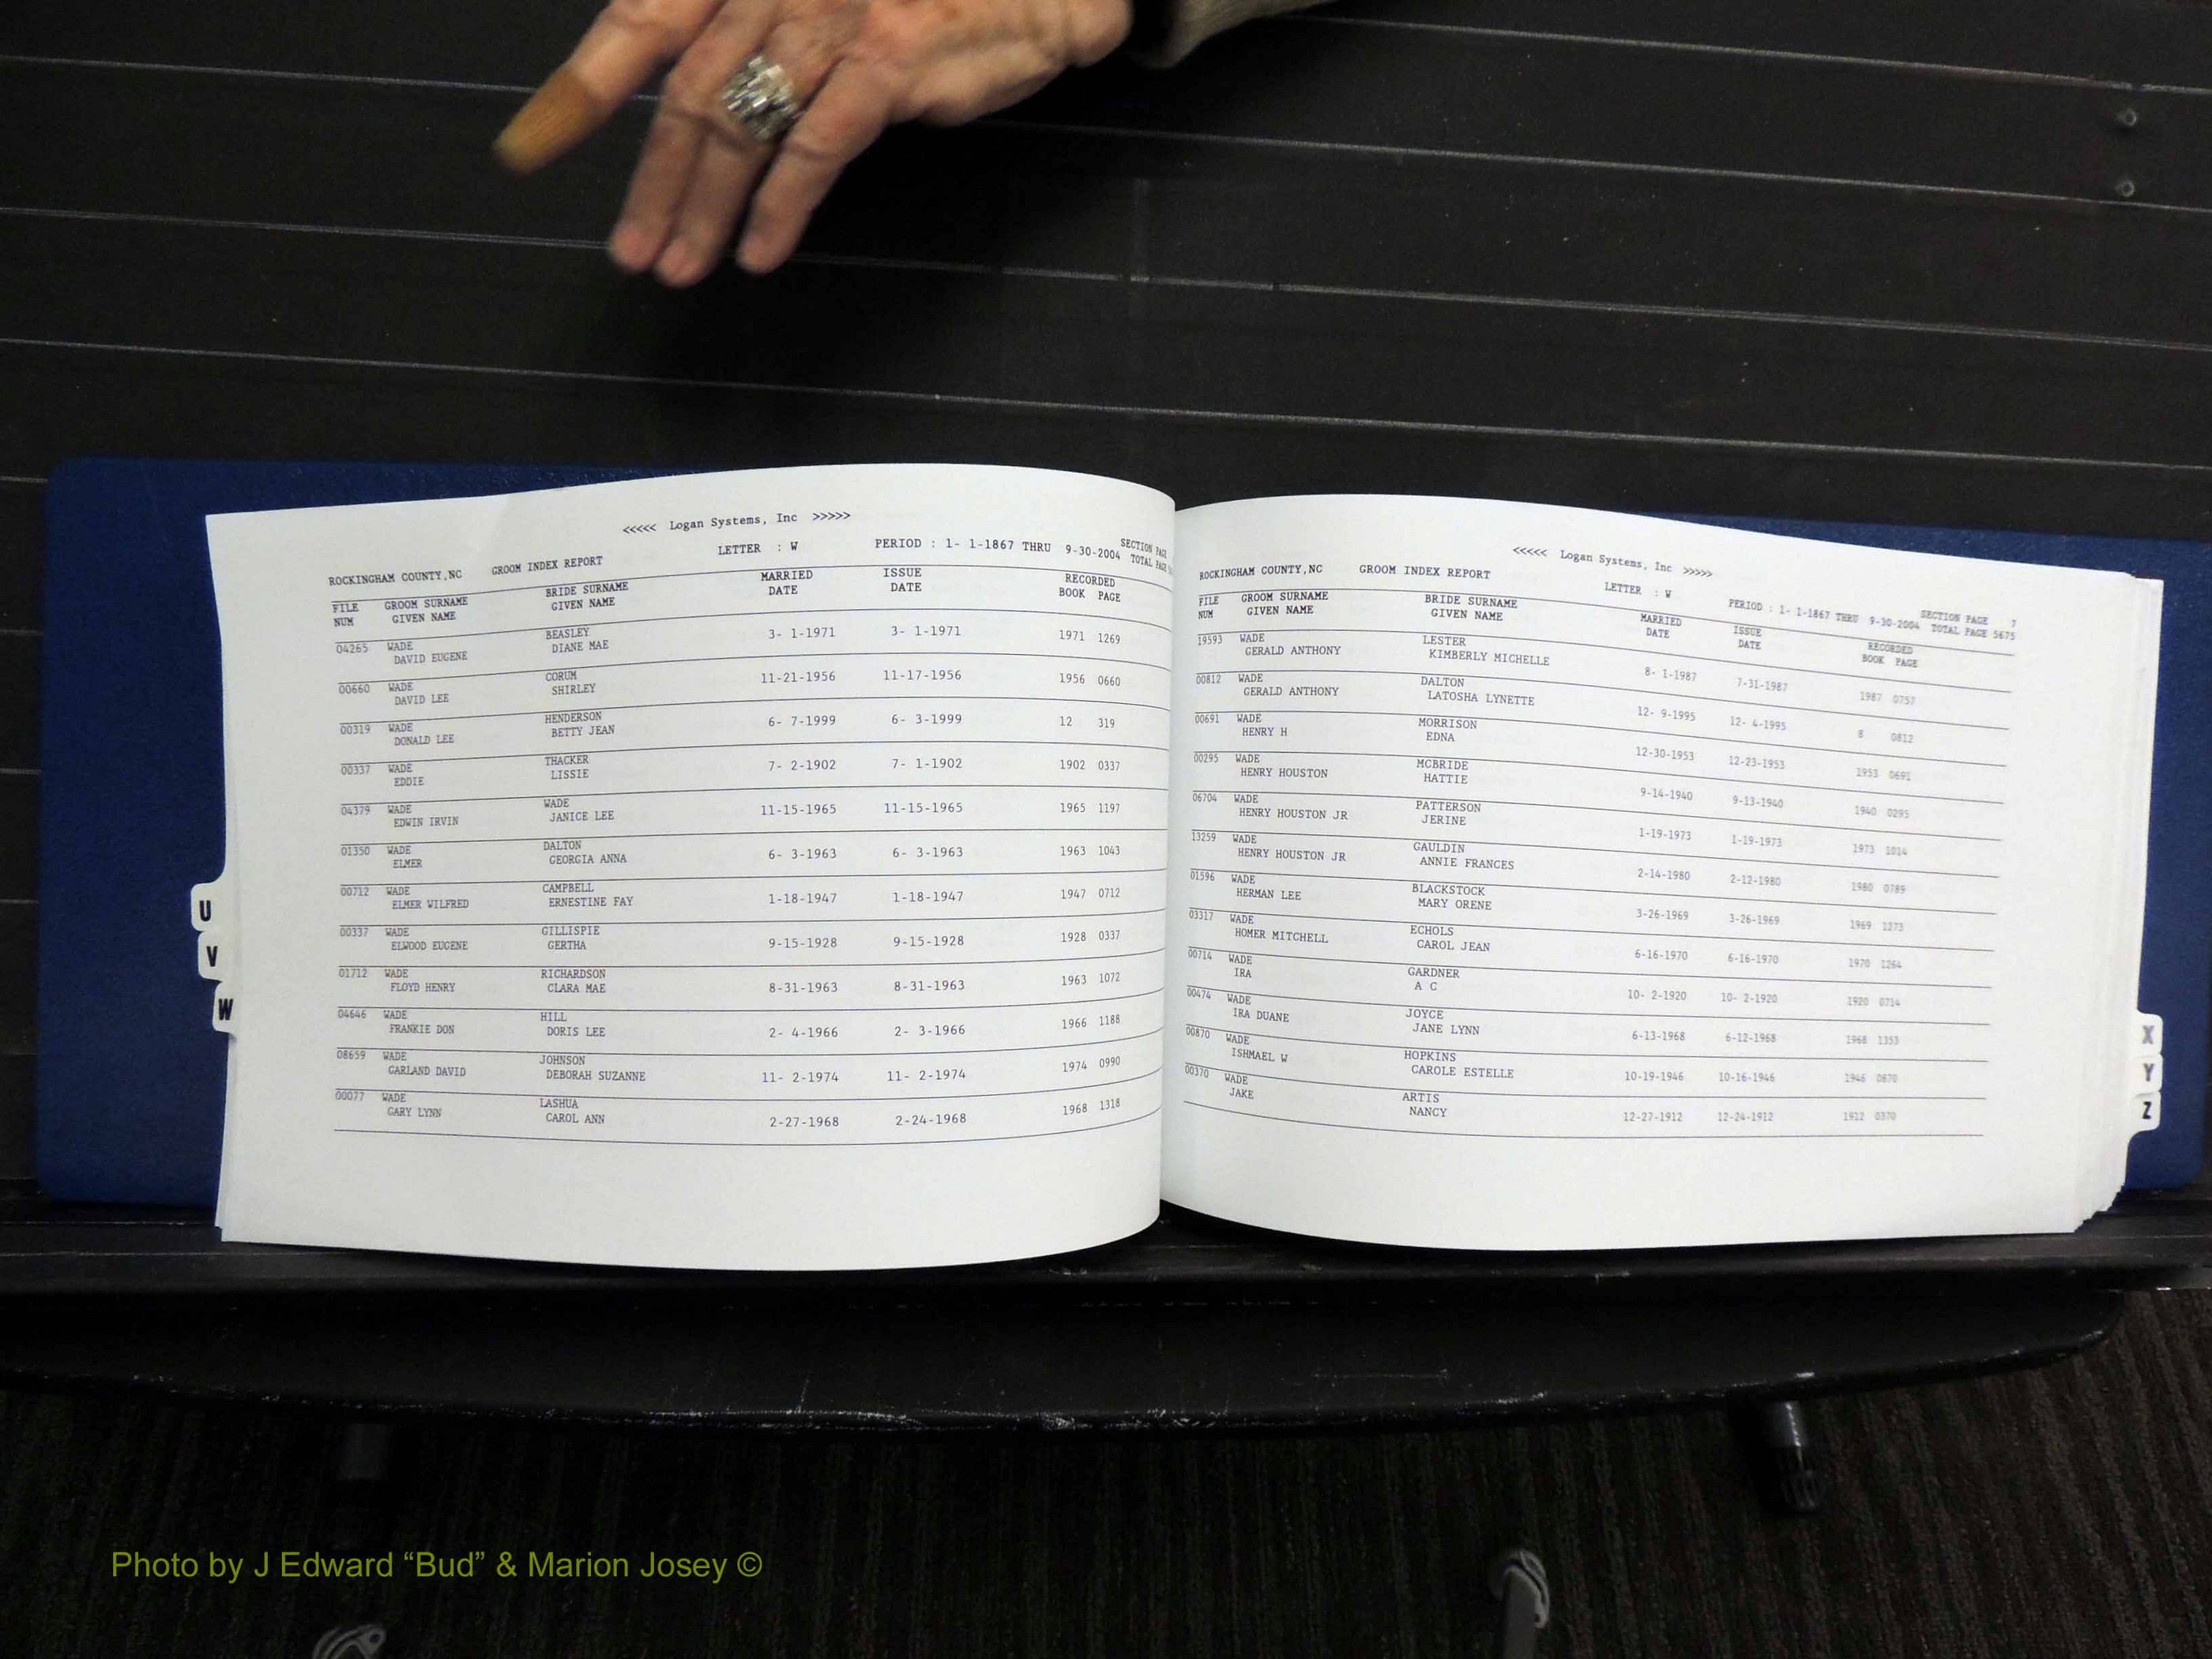 <<<<< Logan Systems, Inc >>>>>
ROCKINGHAM COUNTY,NC GROOM INDEX REPORT LETTER : W PERIOD : 1- 1-1867 THRU 9-30-2004 SECTION PAGE
TOTAL PAGE
FILE GROOM SURNAME BRIDE SURNAME MARRIED ISSUE RECORDED
NUM GIVEN NAME GIVEN NAME DATE DATE BOOK PAGE
04265 WADE BEASLEY 3- 1-1971 3- 1-1971 1971 1269
DAVID EUGENE DIANE MAE
00660 WADE CORUM 11-21-1956 11-17-1956 1956 0660
DAVID LEE SHIRLEY
00319 WADE HENDERSON 6- 7-1999 6- 3-1999 12 319
DONALD LEE BETTY JEAN
00337 WADE THACKER 7- 2-1902 7- 1-1902 1902 0337
EDDIE LISSIE
04379 WADE WADE 11-15-1965 11-15-1965 1965 1197
EDWIN IRVIN JANICE LEE
01350 WADE DALTON 6- 3-1963 6- 3-1963 1963 1043
ELMER GEORGIA ANNA
00712 WADE CAMPBELL 1-18-1947 1-18-1947 1947 0712
ELMER WILFRED ERNESTINE FAY
00337 WADE GILLISPIE 9-15-1928 9-15-1928 1928 0337
ELWOOD EUGENE GERTHA
01712 WADE RICHARDSON 8-31-1963 8-31-1963 1963 1072
FLOYD HENRY CLARA MAE
04646 WADE HILL 2- 4-1966 2- 3-1966 1966 1188
FRANKIE DON DORIS LEE
08659 WADE JOHNSON 11- 2-1974 11- 2-1974 1974 0990
GARLAND DAVID DEBORAH SUZANNE
00077 WADE LASHUA 2-27-1968 2-24-1968 1968 1318
GARY LYNN CAROL ANN
U
V
W
<<<<< Logan Systems, Inc >>>>>
ROCKINGHAM COUNTY,NC GROOM INDEX REPORT LETTER : W PERIOD : 1- 1-1867 THRU 9-30-2004 SECTION PAGE 7
TOTAL PAGE 5675
FILE GROOM SURNAME BRIDE SURNAME MARRIED ISSUE RECORDED
NUM GIVEN NAME GIVEN NAME DATE DATE BOOK PAGE
19593 WADE LESTER 8- 1-1987 7-31-1987 1987 0757
GERALD ANTHONY KIMBERLY MICHELLE
00812 WADE DALTON 12- 9-1995 12- 4-1995 8 0812
GERALD ANTHONY LATOSHA LYNETTE
00691 WADE MORRISON 12-30-1953 12-23-1953 1953 0691
HENRY H EDNA
00295 WADE MCBRIDE 9-14-1940 9-13-1940 1940 0295
HENRY HOUSTON HATTIE
06704 WADE PATTERSON 1-19-1973 1-19-1973 1973 1014
HENRY HOUSTON JR JERINE
13259 WADE GAULDIN 2-14-1980 2-12-1980 1980 0789
HENRY HOUSTON JR ANNIE FRANCES
01596 WADE BLACKSTOCK 3-26-1969 3-26-1969 1969 1273
HERMAN LEE MARY ORENE
03317 WADE ECHOLS 6-16-1970 6-16-1970 1970 1264
HOMER MITCHELL CAROL JEAN
00714 WADE GARDNER 10- 2-1920 10- 2-1920 1920 0714
IRA A C
00474 WADE JOYCE 6-13-1968 6-12-1968 1968 1353
IRA DUANE JANE LYNN
00870 WADE HOPKINS 10-19-1946 10-16-1946 1946 0870
ISHMAEL W CAROLE ESTELLE
00370 WADE ARTIS 12-27-1912 12-24-1912 1912 0370
JAKE NANCY
X
Y
Z
Photo by J Edward “Bud” & Marion Josey ©